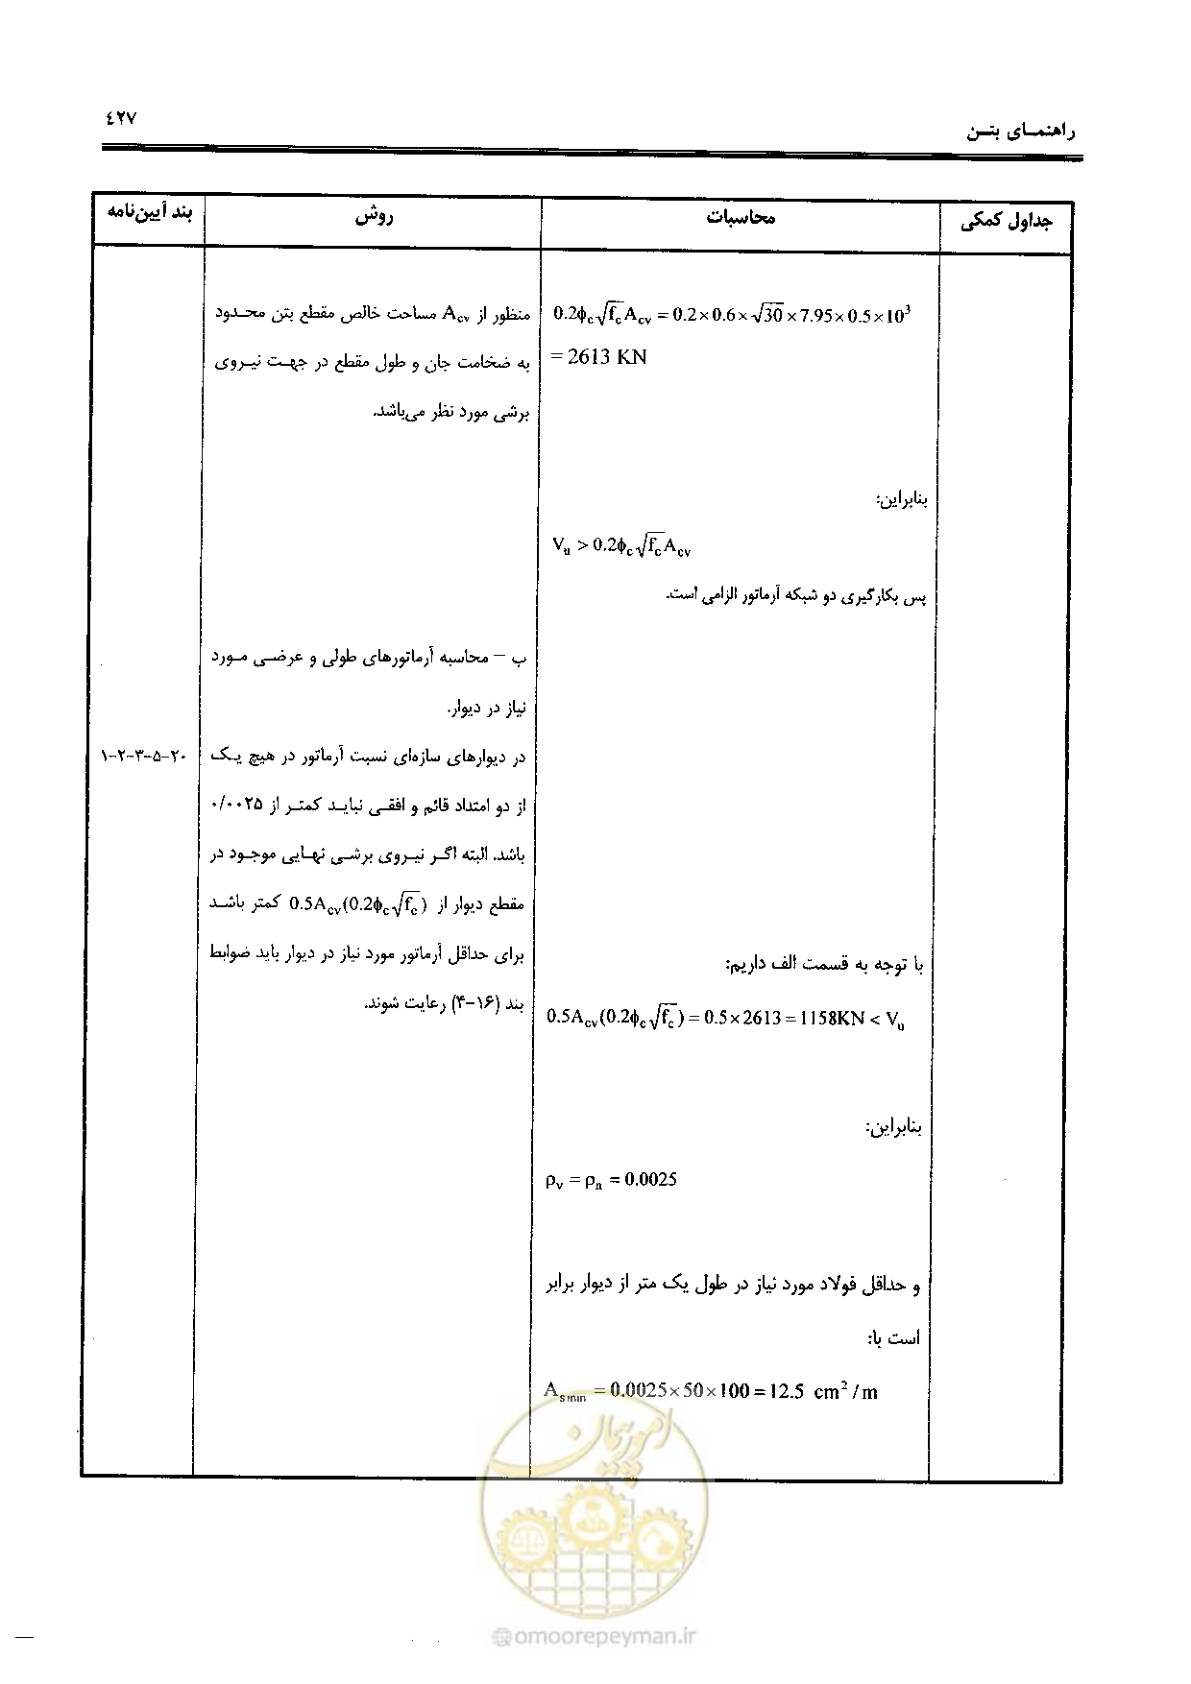 راهنمـای بتـن
٤٢٧
جداول کمکی
محاسبات
روش
بند آیین‌نامه
0.2ϕc√fc Acv = 0.2×0.6×√30×7.95×0.5×10³
= 2613 KN
بنابراین:
Vu > 0.2ϕc√fc Acv
پس بکارگیری دو شبکه آرماتور الزامی است.
با توجه به قسمت الف داریم:
0.5Acv(0.2ϕc√fc) = 0.5×2613 = 1158KN < Vu
بنابراین:
ρv = ρn = 0.0025
و حداقل فولاد مورد نیاز در طول یک متر از دیوار برابر
است با:
As min = 0.0025×50×100 = 12.5 cm²/m
منظور از Acv مساحت خالص مقطع بتن محـدود
به ضخامت جان و طول مقطع در جهـت نیـروی
برشی مورد نظر می‌باشد.
ب – محاسبه آرماتورهای طولی و عرضـی مـورد
نیاز در دیوار.
در دیوارهای سازه‌ای نسبت آرماتور در هیچ یـک
از دو امتداد قائم و افقـی نبایـد کمتـر از ۰/۰۰۲۵
باشد. البته اگـر نیـروی برشـی نهـایی موجـود در
مقطع دیوار از 0.5Acv(0.2ϕc√fc) کمتر باشـد
برای حداقل آرماتور مورد نیاز در دیوار باید ضوابط
بند (۱۶-۴) رعایت شوند.
۲۰-۵-۳-۲-۱
امور پیمان
@omoorepeyman.ir